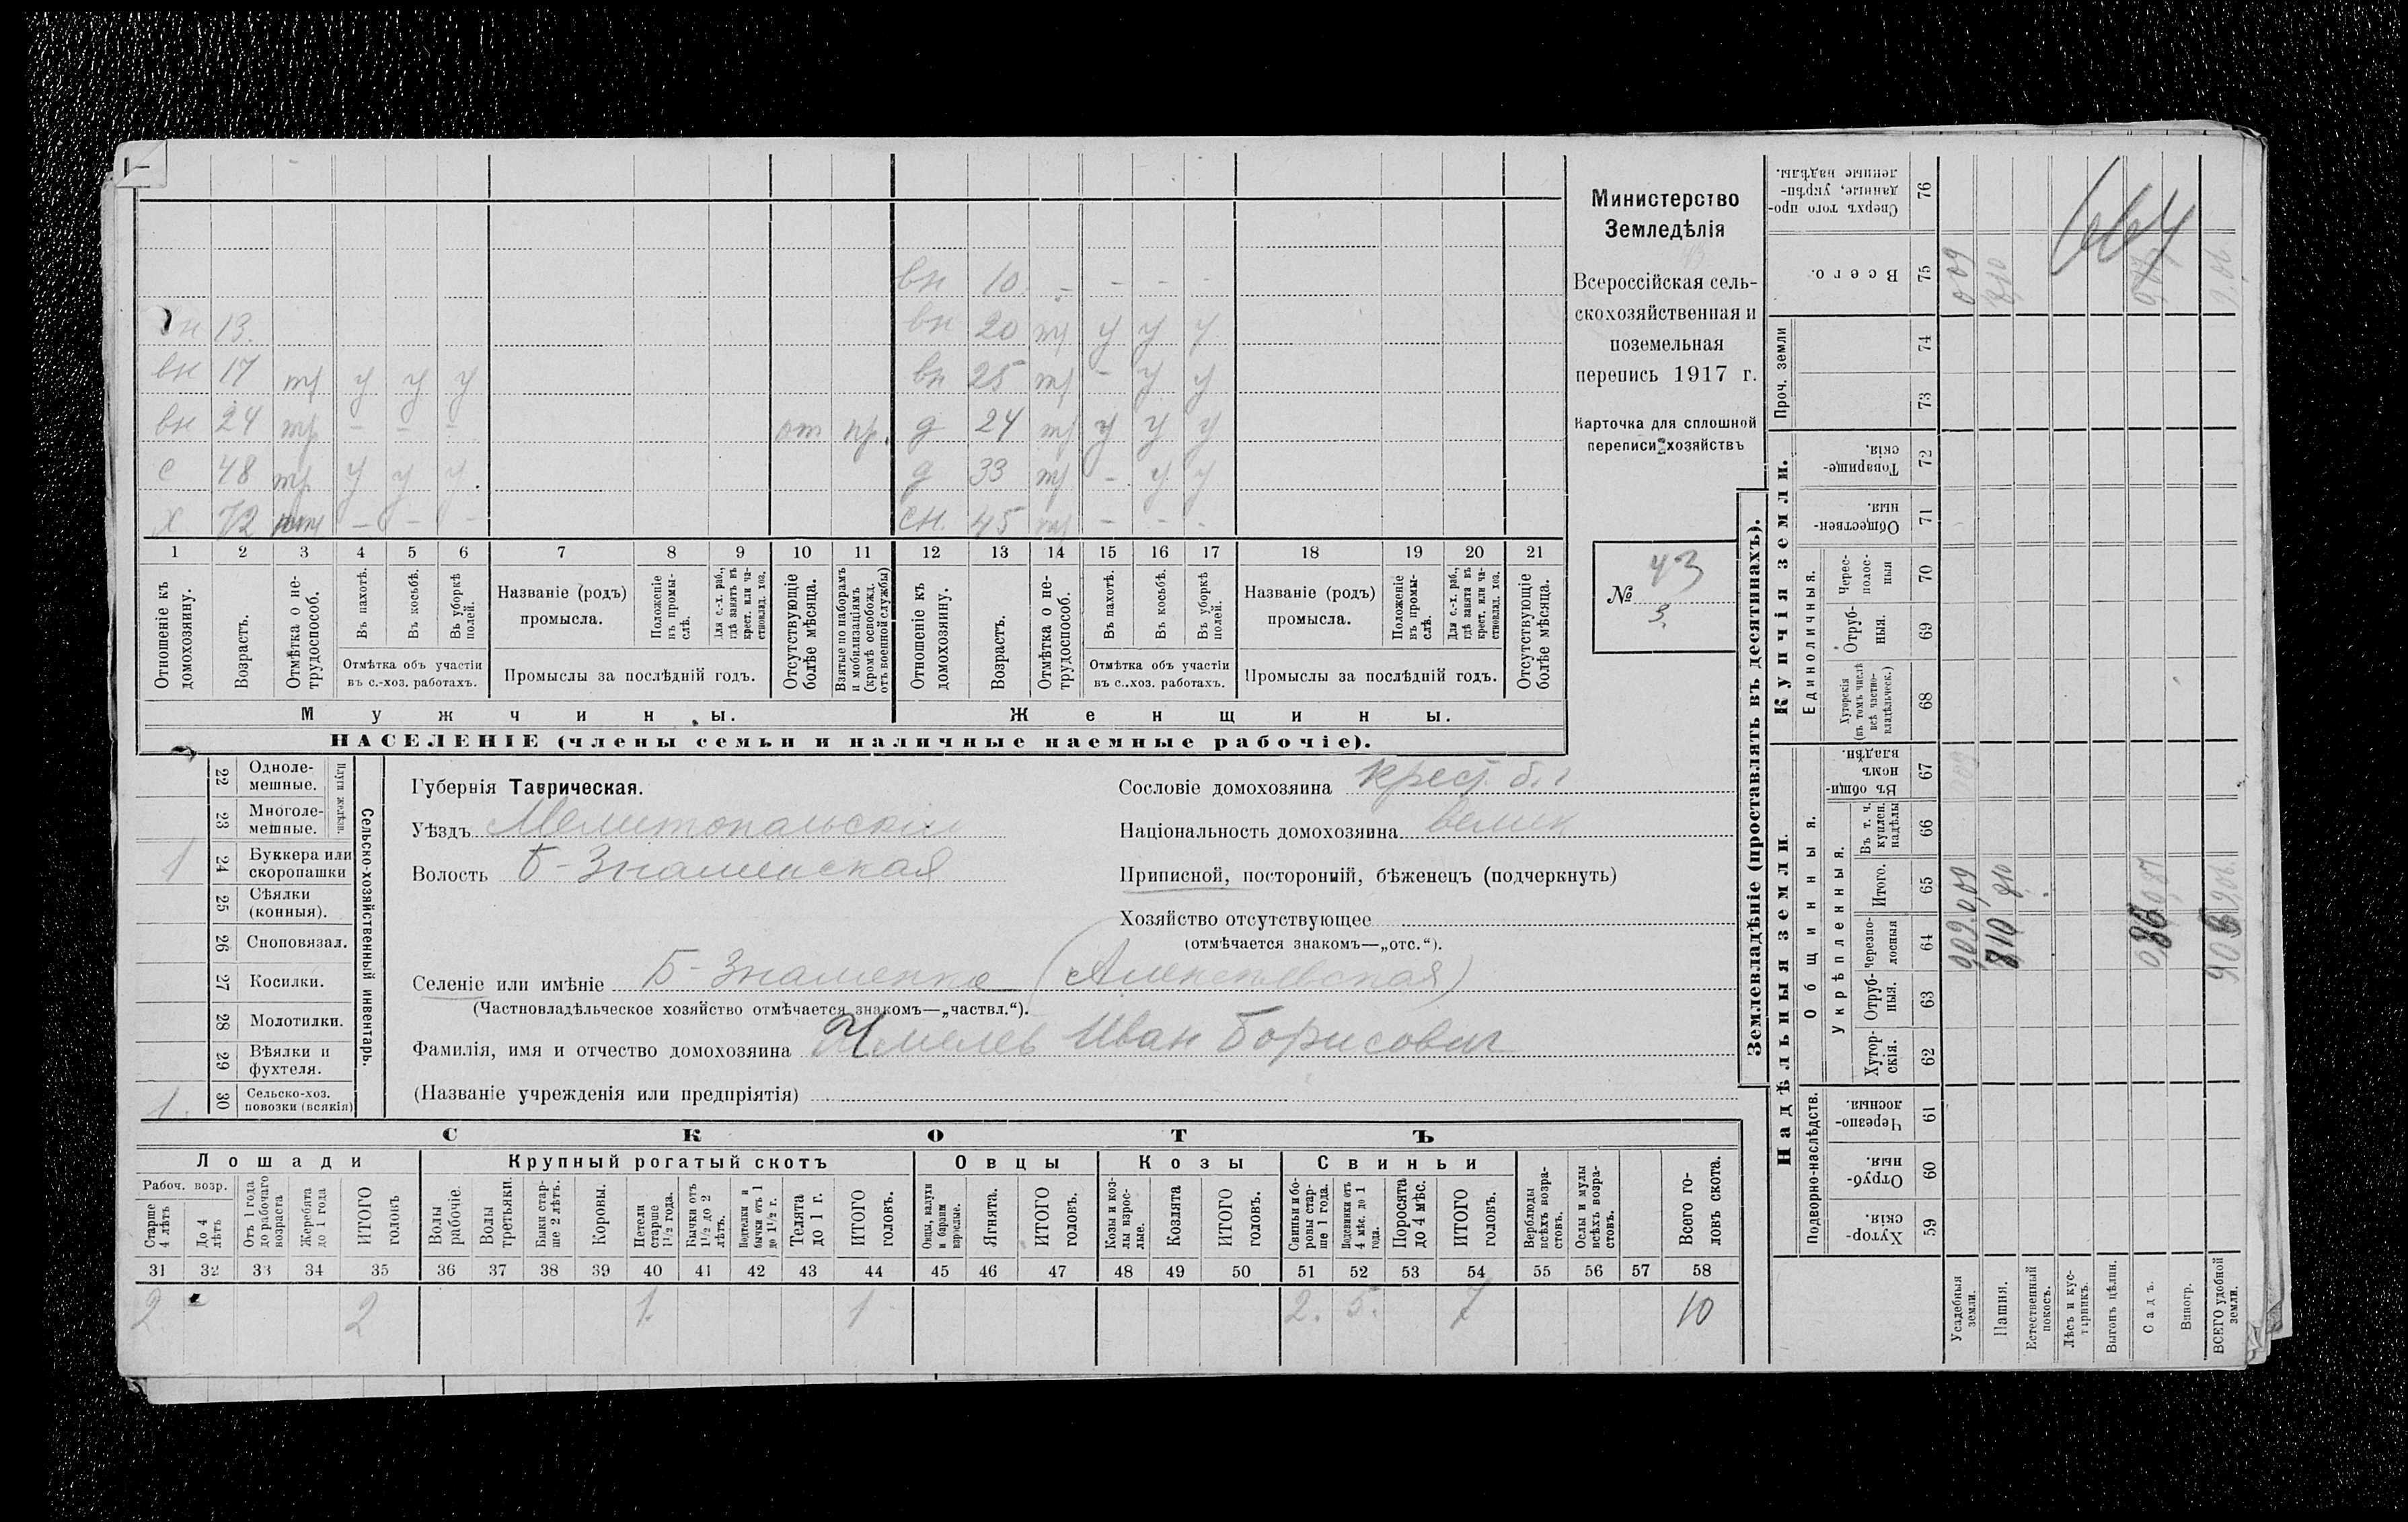 вн 10. - - - -
н 13. вн 20 тр у у у
вн 17 тр у у у вн 25 тр - у у
вн 24 тр - - - от пр. д 24 тр у у у
с 48 тр у у у. д 33 тр - у у
х 72 - - - сн. 45 - - -
1 2 3 4 5 6 7 8 9 10 11 12 13 14 15 16 17 18 19 20 21
Отношеніе къ домохозяину.
Возрастъ.
Отмѣтка о не-трудоспособ.
Въ пахотѣ.
Въ косьбѣ.
Въ уборкѣ полей.
Отмѣтка объ участіи
въ с.-хоз. работахъ.
Названіе (родъ)
промысла.
Положеніе въ промы-слѣ.
Для с.-х. раб., гдѣ занятъ въ крест. или ча-стновлад. хоз.
Промыслы за послѣдній годъ.
Отсутствующіе болѣе мѣсяца.
Взятые по наборамъ и мобилизаціямъ (кромѣ освобожд. отъ военной службы)
Отношеніе къ домохозяину.
Возрастъ.
Отмѣтка о не-трудоспособ.
Въ пахотѣ.
Въ косьбѣ.
Въ уборкѣ полей.
Отмѣтка объ участіи
въ с.-хоз. работахъ.
Названіе (родъ)
промысла.
Положеніе въ промы-слѣ.
Для с.-х. раб., гдѣ занята въ крест. или ча-стновлад. хоз.
Промыслы за послѣдній годъ.
Отсутствующіе болѣе мѣсяца.
Мужчины. Женщины.
НАСЕЛЕНІЕ (члены семьи и наличные наемные рабочіе).
Министерство
Земледѣлія
Всероссійская сель-
скохозяйственная и
поземельная
перепись 1917 г.
Карточка для сплошной
переписи хозяйствъ
№ 43
3.
22 Одноле-мешные.
23 Многоле-мешные.
Плуги желѣзн.
1 24 Буккера или скоропашки
25 Сѣялки (конныя).
26 Сноповязал.
27 Косилки.
28 Молотилки.
29 Вѣялки и фухтеля.
1. 30 Сельско-хоз. повозки (всякія)
Сельско-хозяйственный инвентарь.
Губернія Таврическая.
Уѣздъ Мелитопольскій
Волость Б-Знаменская
Сословіе домохозяина крест. б.
Національность домохозяина велик
Приписной, посторонній, бѣженецъ (подчеркнуть)
Хозяйство отсутствующее
(отмѣчается знакомъ—„отс.“).
Селеніе или имѣніе Б-Знаменка (Алексеевская)
(Частновладѣльческое хозяйство отмѣчается знакомъ—„частвл.“).
Фамилія, имя и отчество домохозяина Хмелев Иван Борисович
(Названіе учрежденія или предпріятія)
СКОТЪ
Лошади Крупный рогатый скотъ Овцы Козы Свиньи
Рабоч. возр.
Старше 4 лѣтъ
До 4 лѣтъ
Отъ 1 года до рабочаго возраста
Жеребята до 1 года
ИТОГО головъ
Волы рабочіе.
Волы третьяки.
Быки стар-ше 2 лѣтъ.
Коровы.
Нетели старше 1½ года.
Бычки отъ 1½ до 2 лѣтъ.
Подтелки и бычки отъ 1 до 1½ г.
Телята до 1 г.
ИТОГО головъ.
Овцы, валухи и бараны взрослые.
Ягнята.
ИТОГО головъ.
Козы и коз-лы взрос-лые.
Козлята
ИТОГО головъ.
Свиньи и бо-ровы стар-ше 1 года.
Подсвинки отъ 4 мѣс. до 1 года.
Поросята до 4 мѣс.
ИТОГО головъ.
Верблюды всѣхъ возра-стовъ.
Ослы и мулы всѣхъ возра-стовъ.
Всего го-ловъ скота.
31 32 33 34 35 36 37 38 39 40 41 42 43 44 45 46 47 48 49 50 51 52 53 54 55 56 57 58
2 2 1. 1 2. 5. 7 10
Землевладѣніе (проставлять въ десятинахъ).
Надѣльныя земли. Купчія земли. Проч. земли
Подворно-наслѣдств. Общинныя. Единоличныя.
Укрѣпленныя.
Хутор-скія. 59
Отруб-ныя. 60
Черезпо-лосныя. 61
Хутор-скія. 62
Отруб-ныя. 63
Черезпо-лосныя 64
Итого. 65
Въ т. ч. куплен. надѣлы 66
Въ общи-номъ владѣн. 67
Хуторскія (въ томъ числѣ всѣ частно-владѣльческ.) 68
Отруб-ныя. 69
Черес-полос-ныя 70
Обществен-ныя. 71
Товарище-скія. 72
73
74
Всего. 75
Сверхъ того про-данные, укрѣп-ленные надѣлы. 76
Усадебныя земли. 0,09 0,09 0,09
Пашня. 8,10 8,10 8,10
Естественный покосъ.
Лѣсъ и кус-тарникъ.
Выгонъ цѣлин.
Садъ. 0,87
Виногр.
ВСЕГО удобной земли. 9,06 9,06